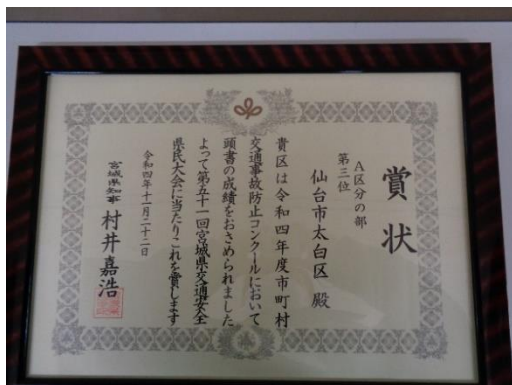 賞状
A区分の部
第三位
仙台市太白区 殿
貴区は令和四年度市町村
交通事故防止コンクールにおいて
頭書の成績をおさめられました
よって第五十一回宮城県交通安全
県民大会に当たりこれを賞します
令和四年十一月二十二日
宮城県知事 村井嘉浩